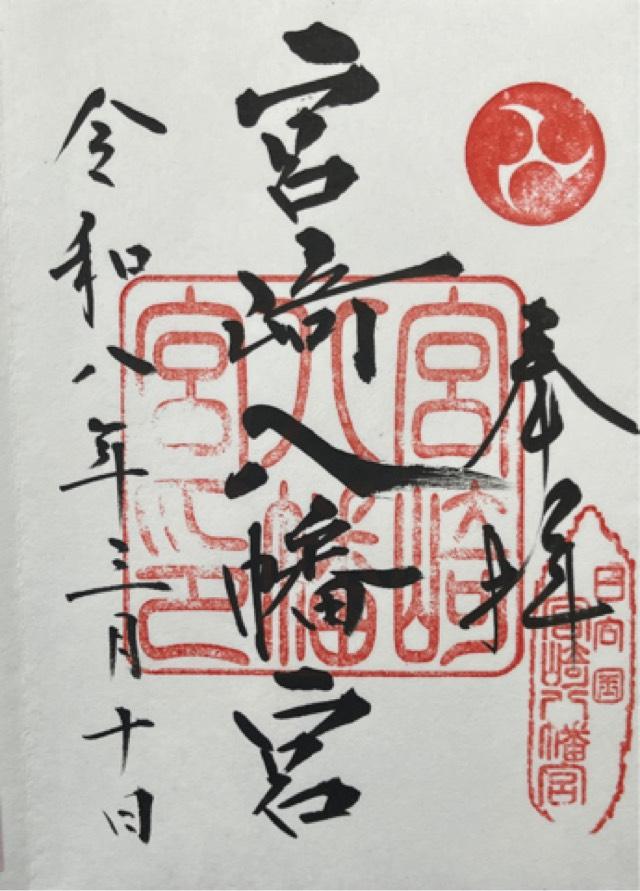 奉拝
日向国
宮崎八幡宮
宮崎八幡宮
宮崎
八幡
宮印
令和八年三月十日